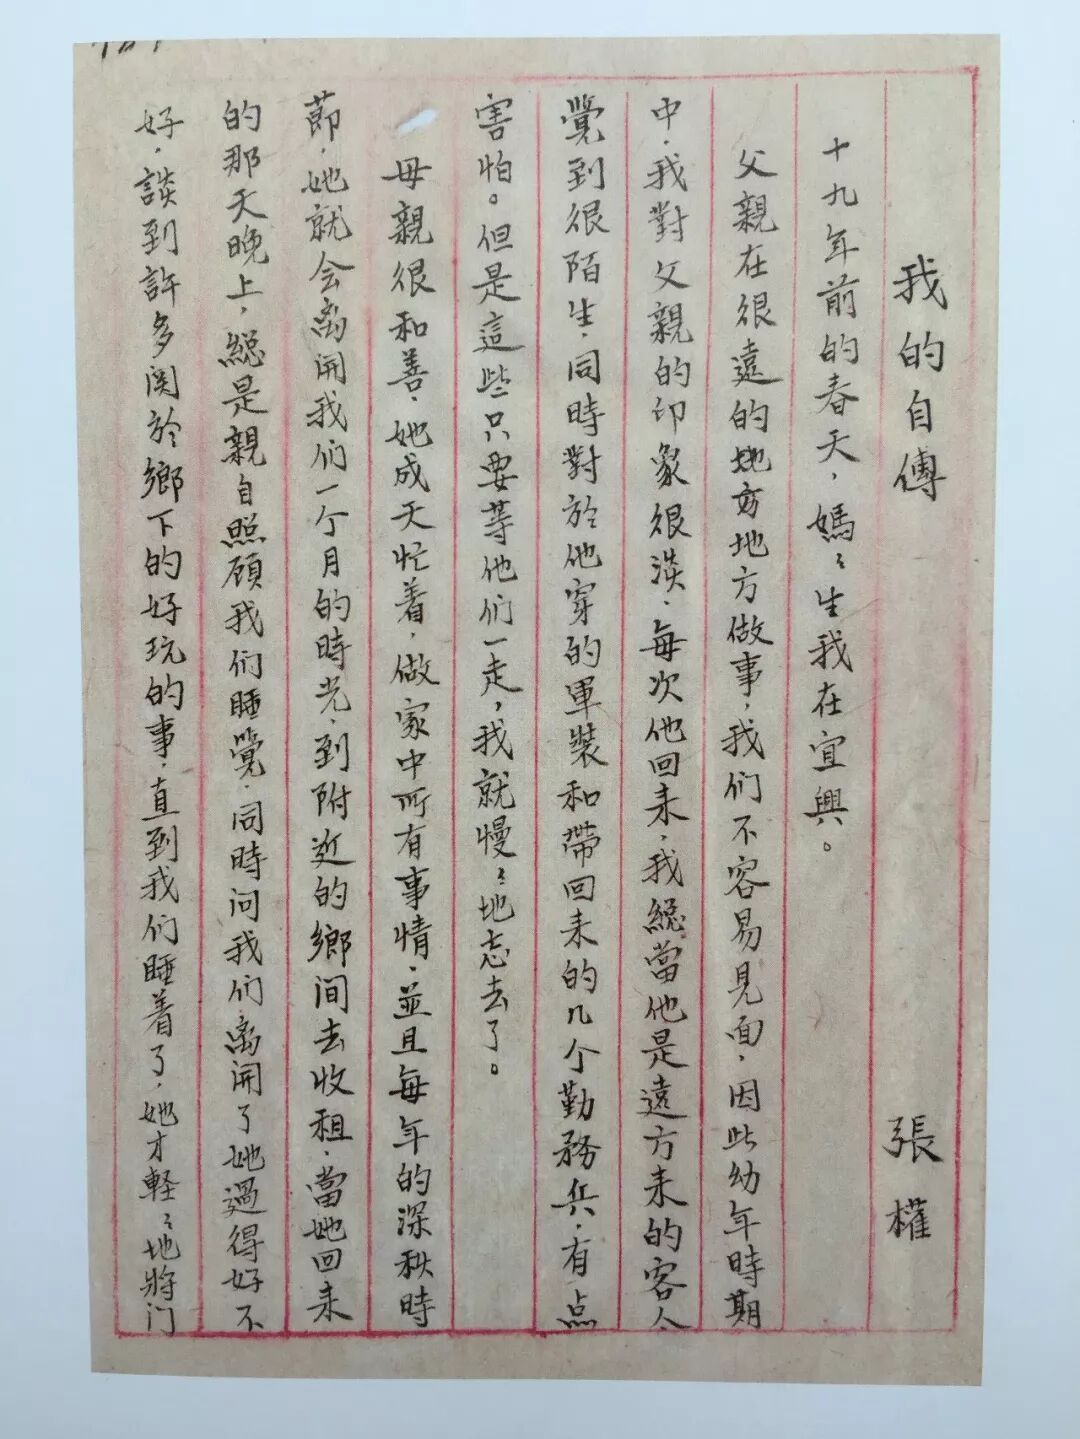 我的自傳 張權
十九年前的春天，媽〻生我在宜興。
父親在很遠的地方地方做事，我们不容易見面，因此幼年時期
中，我對父親的印象很淡，每次他回来，我總當他是遠方来的客人，
覺到很陌生，同時對於他穿的軍裝和帶回来的几个勤務兵，有点
害怕。但是這些只要等他们一走，我就慢〻地忘去了。
母親很和善，她成天忙着，做家中所有事情，並且每年的深秋時
節，她就会离開我们一个月的時光，到附近的鄉间去收租，當她回来
的那天晚上，總是親自照顧我们睡覺，同時问我们离開了她過得好不
好，談到許多関於鄉下的好玩的事，直到我们睡着了，她才輕〻地將门